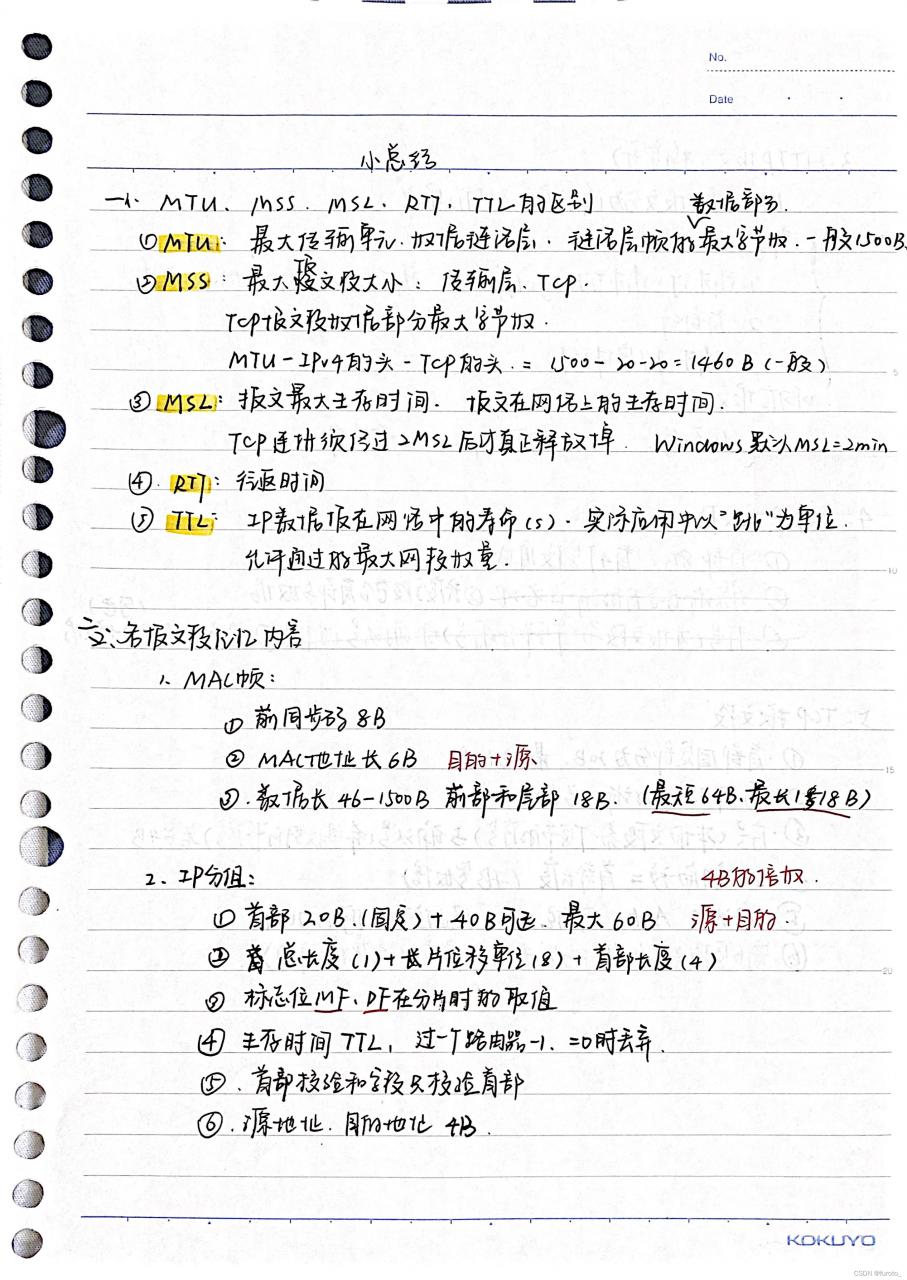 No.
Date
小总结
一、MTU、MSS、MSL、RTT、TTL的区别
数据部分.
① MTU: 最大传输单元. 数据链路层. 链路层帧的最大字节数. 一般1500B.
② MSS: 最大报文段大小: 传输层. TCP.
TCP报文段数据部分最大字节数.
MTU-IPv4的头-TCP的头. = 1500-20-20=1460B (一般)
③ MSL: 报文最大生存时间. 报文在网络上的生存时间.
TCP连接须经过2MSL后才真正释放掉. Windows默认MSL=2min
④. RTT: 往返时间
⑤ TTL: IP数据报在网络中的寿命(s). 实际应用中以"跳"为单位.
允许通过的最大网段数量.
二、各报文段记忆内容
1. MAC帧:
① 前同步码 8B
② MAC地址长6B 目的+源
③. 数据长 46-1500B 首部和尾部 18B. (最短64B、最长1518B)
2、IP分组: 4B的倍数.
① 首部 20B.(固定)+40B可选. 最大 60B 源+目的.
② 总长度(1)+片位移单位(8)+首部长度(4)
③ 标志位MF、DF在分片时的取值
④ 生存时间TTL, 过一个路由器-1. =0时丢弃.
⑤. 首部校验和字段只校验首部
⑥. 源地址. 目的地址 4B.
5
10
15
20
KOKUYO
CSDN @furoto_